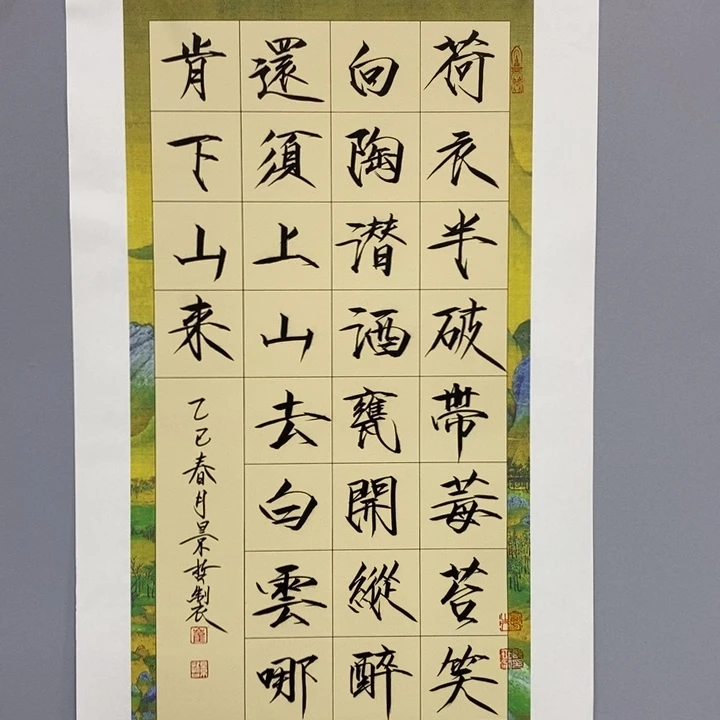 荷衣半破帶莓苔笑
向陶潛酒甕開縱醉
還須上山去白雲哪
肯下山來
乙巳春月景哲製